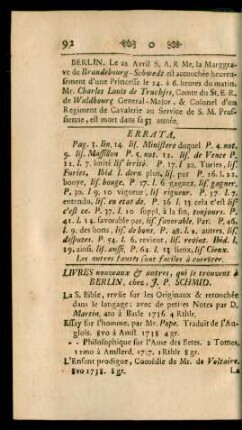 92 o
BERLIN. Le 22 Avril S. A. R. Me. la Marggra-
ve de Brandebourg-Schwedt est accouchée heureu-
sement d'une Princesse le 24. à 6. heures du matin.
Mr. Charles Louis de Truchses, Comte du St. E. R.
de Waldbourg General-Major. & Colonel d'un
Regiment de Cavalerie au Service de S. M. Prus-
sienne, est mort dans sa 57 année.
ERRATA.
Pag. 3. lin. 14 lis. Ministere duquel P. 4. not.
9. lis. Massillon P. 5. not. 12. lis. de Vence P.
12. l. 7. unité lis' brité. P. 17. l 20, Turies, lis.
Furies, Ibid l. dern. plus, lis. par P. 26. l. 22.
bouye, lis. bouge, P. 27. l. 6 gagnez, lis. gagner.
P. 30. l. 9. 10 vigueur; lis. rigueur. P. 37. l. 7.
entendu, lis. en etat de. P. 36 l. 13 cela c'est lis
c'est ce. P. 37. l. 10 suppl. à la fin, toujours. P.
41. l. 12. favorable par, lis. favorable. Par. P. 46.
l. 9. des bons, lis. de bons, P. 48. l. 2. autres. lis.
disputes. P. 54. l. 6, revient, lis. revint. Ibid. l.
19, ainsi, lis. aussi. P. 64. l. 13 lieux, lis Cieux.
Les autres fautes sont faciles à corriger.
LIVRES nouveaux & autres, qui se trouvent à
BERLIN, chez, J. P. SCHMID.
La S. Bible, revûe sur les Originaux & retouchée
dans le langage: avec de petites Notes par D.
Martin, 4to à Basle 1736. 4 Rthlr.
Essay sur l'homme, par Mr. Pope. Traduit de l'An-
glois. 8vo à Amst. 1738 4 gr.
- - Philosophique sur l'Ame des Betes. 2 Tomes.
12mo à Amsterd. 17.7. 1 Rthlr 8 gr.
L'Enfant prodigue, Comédie de Mr. de Voltaire.
8vo 1738. 8 gr. La